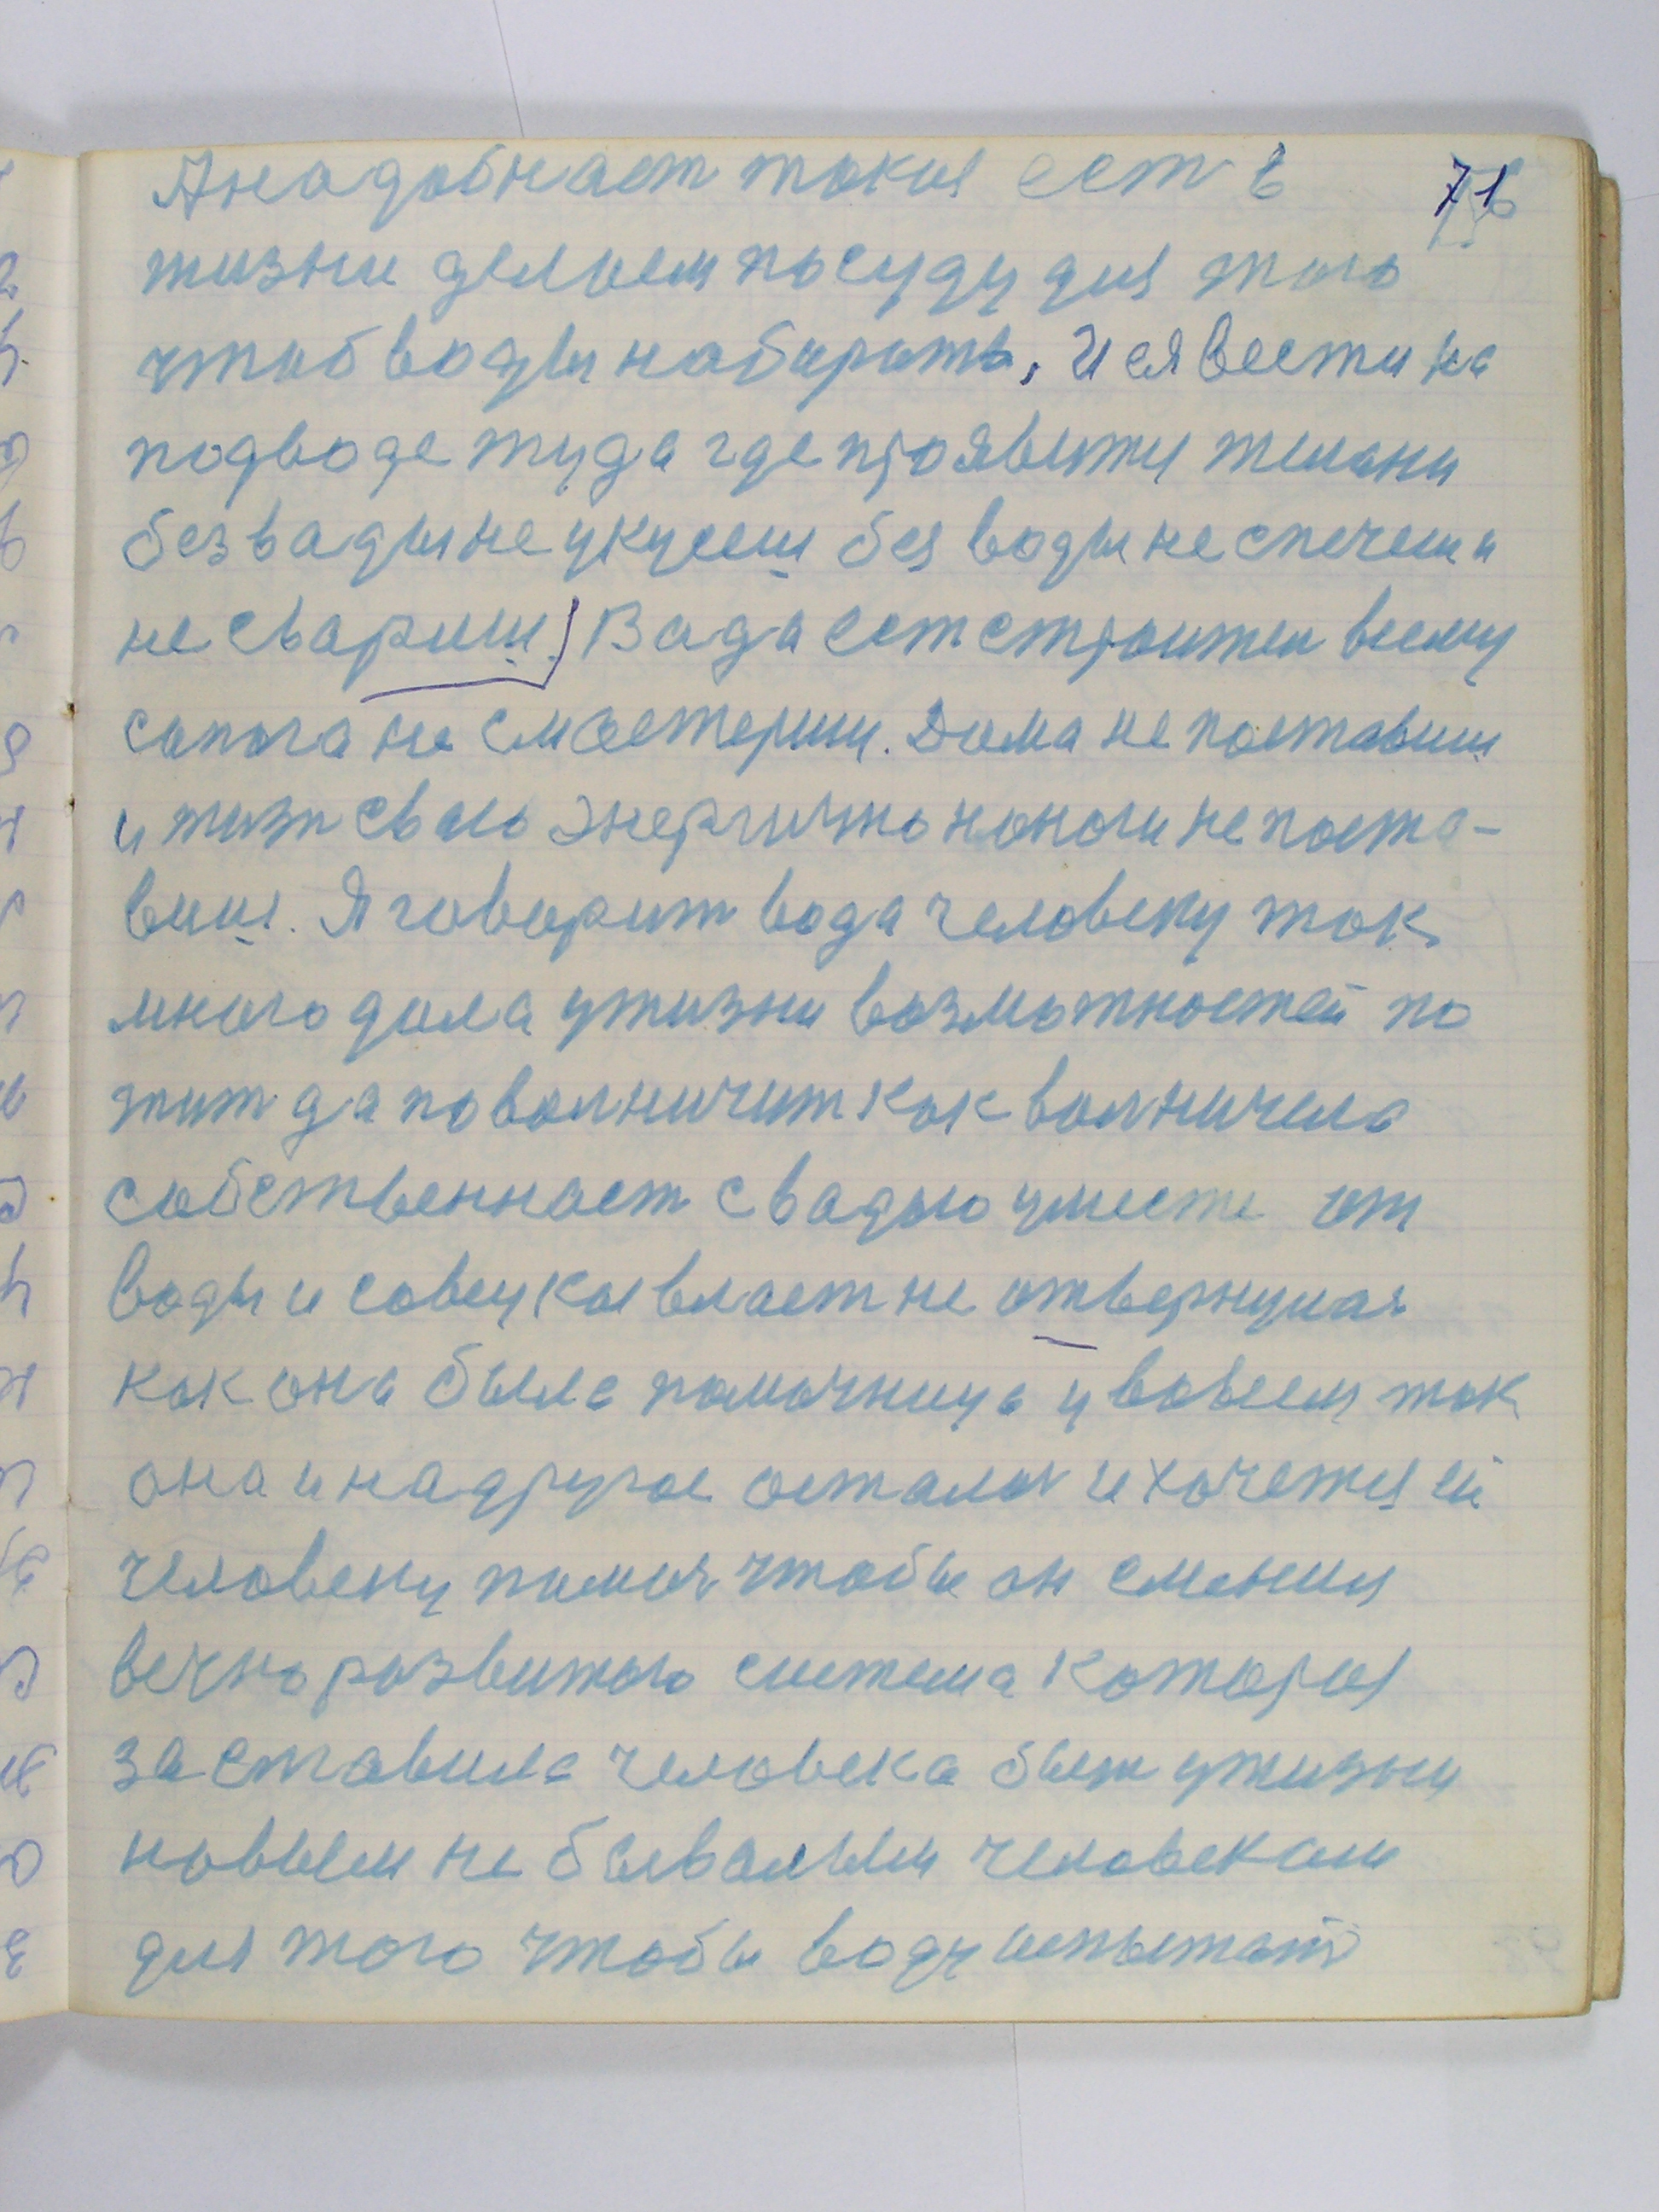 71
А надобнаст такия ест в
жизни делаем посуду для того
чтоб воды набирать, И ея вести на
подводе туда где проявитця желани
без вады не укусеш без воды не спечеш и
не свариш) Вада ест строител всему
сапога не смастериш. Дома не поставиш
и жизн сваю энергично наноги не поста-
виш. Я говорит вода человеку так
много дала ужизни возможностей по
жит да поволничит как волничела
собственност свадою умести от
воды и совецкая власт не отвернулас
как она была помочница у вовсем так
она и надругое осталас и хочетця ей
человеку помоч чтобы он сменил
вечно развитою система которая
заставила человека быт ужизни
новыем не бывалым человекам
для того чтобы воду испытат